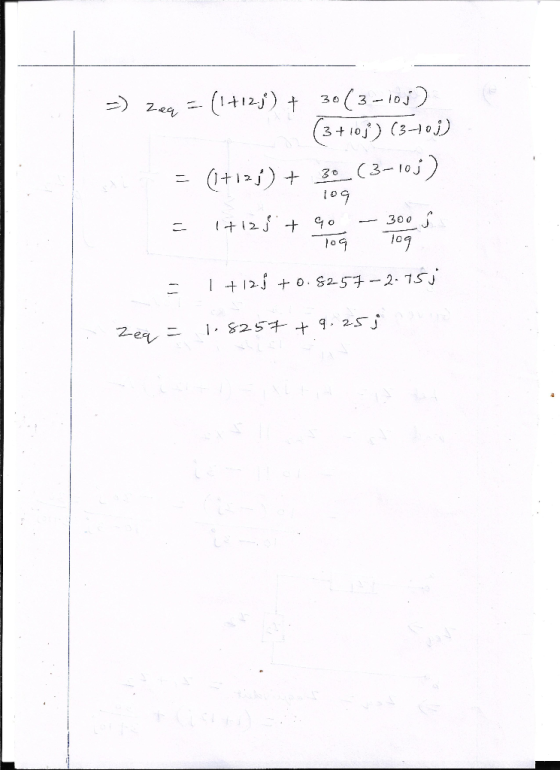 ⇒ Zeq = (1+12j) + 30(3-10j) / (3+10j)(3-10j)
= (1+12j) + 30/109 (3-10j)
= 1+12j + 90/109 - 300/109 j
= 1+12j + 0.8257-2.75j
Zeq = 1.8257 + 9.25j